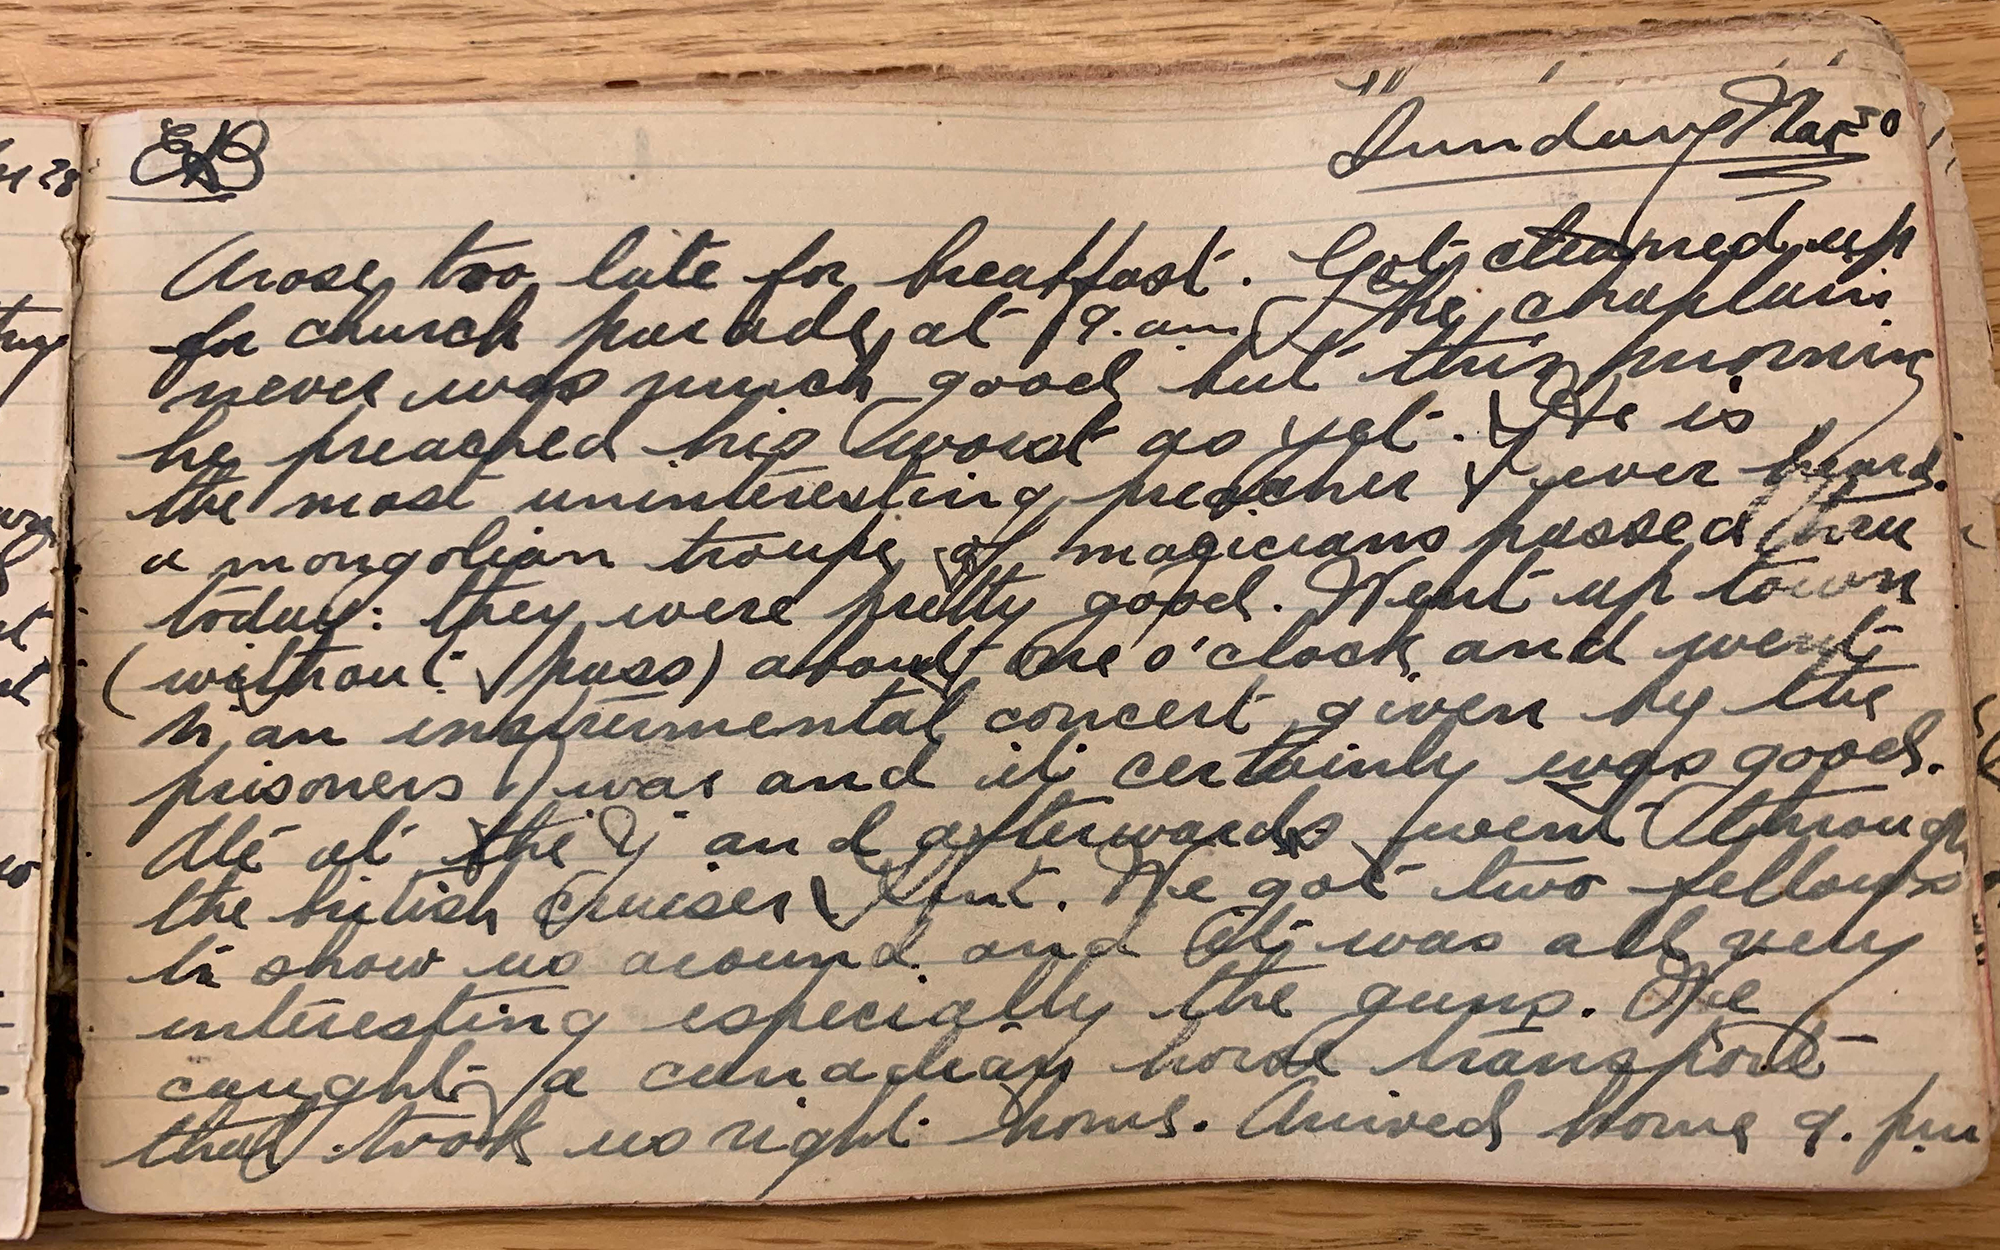 EAB
Sunday Mar 30
Arose too late for breakfast. Got cleaned up
for church parade at 9. am The chaplain
never was much good but this morning
he preached his worst as yet. He is
the most uninteresting preacher I ever heard.
a mongolian troupe of magicians passed thru
today: they were pretty good. Went up town
(without pass) about one o'clock and went
to an instrumental concert given by the
prisoners war and it certainly was good.
Ate at the Y and afterwards went through
the british cruiser Kent. We got two fellows
to show us around and it was all very
interesting especially the guns. We
caught a canadian horse transport
that took us right home. Arrived home 9. pm